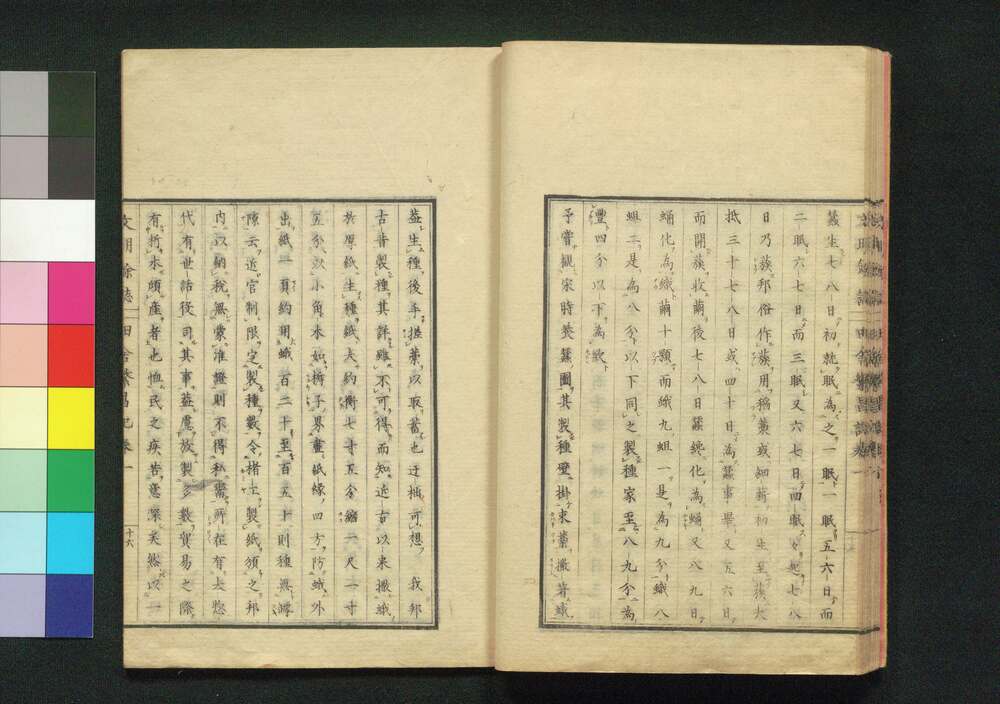 蠶生七八日初就眠為之一眠一眠五六日而
二眠六七日而三眠又六七日四眠々起七八
日乃蔟邦俗作蔟用稿藁或細薪初生至蔟大
抵三十七八日或四十日為蠶事畢又五六日
而開蔟收繭後七八日蠶纔化為蛹又八九日
蛹化為蛾繭十顆而蛾九蛆一是為九分蛾八
蛆二是為八分以下同之製種家至八九分為
豐四分以下為歉
予嘗觀宋時蠶圖其製種壁掛束藁撒著蛾
益生種後手搓藁以取蓄也迂拙可想我邦
古昔製種其詳雖不可得而知近古以來撒蛾
於厚紙生種紙大約衡七寸五分縮一尺一寸
五分以小角木如梯子界畫紙緣四方防蛾外
出紙一頁約用蛾百二十至百五十則種無
隙云近官制限定製種數令楮士製紙頒之邦
内以納稅無蒙准證則不得私鬻所在有大惣
代有世話役司其事蓋虞放製多數貿易之際
有折本傾產者也恤民之疾苦意深矣然以一
文明餘德 田舎繁昌記卷一 十六